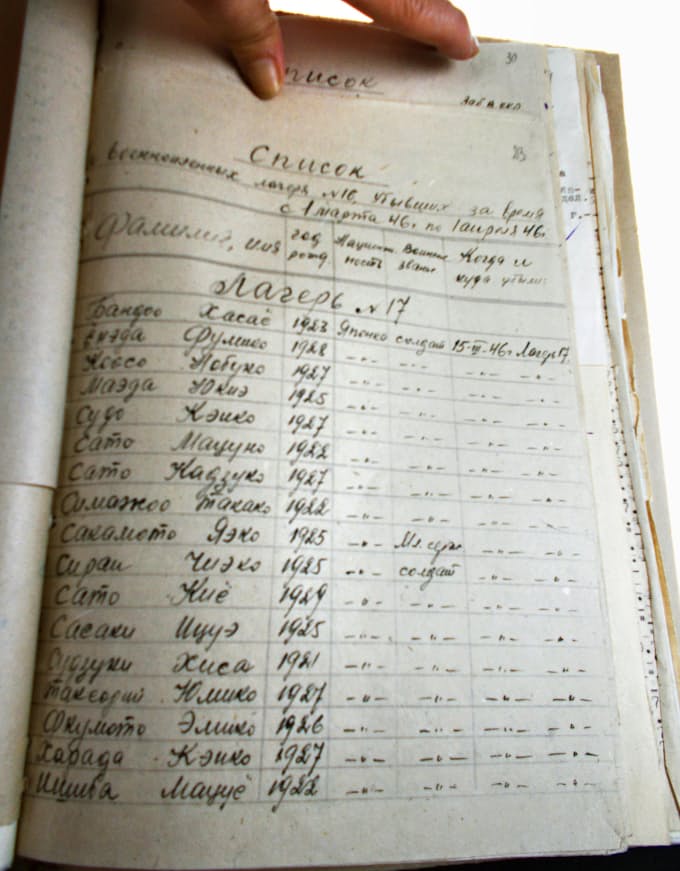 30
Список
Заб. в. окл
23
Список
военнопленных лагеря №16 убывших за время
с 1 марта 46г. по 1 апреля 46г.
Фамилия, имя год рожд. Национальность Воинские звание Когда и куда убыли:
Лагерь №17
Бандоо Хасаё 1923 Японка солдат 15-III-46г Лагерь 17.
Фумико 1928 -"- -"- -"- -"-
Нобуко 1927 -"- -"- -"- -"-
Маэда Юкиэ 1925 -"- -"- -"- -"-
Судо Кэико 1927 -"- -"- -"- -"-
Сато Мацуно 1922 -"- -"- -"- -"-
Сато Кадзуко 1927 -"- -"- -"- -"-
Симажоо Такако 1922 -"- -"- -"- -"-
Сакамото Яэко 1925 -"- Мл. серж -"- -"-
Сираи Чиэко 1925 -"- солдат -"- -"-
Сато Киё 1929 -"- -"- -"- -"-
Сасаки Ицуэ 1925 -"- -"- -"- -"-
Судзуки Хиса 1921 -"- -"- -"- -"-
Юмико 1927 -"- -"- -"- -"-
Фкумото Эмико 1926 -"- -"- -"- -"-
Харада Кэико 1927 -"- -"- -"- -"-
Ишиба Мацуё 1922 -"- -"- -"- -"-